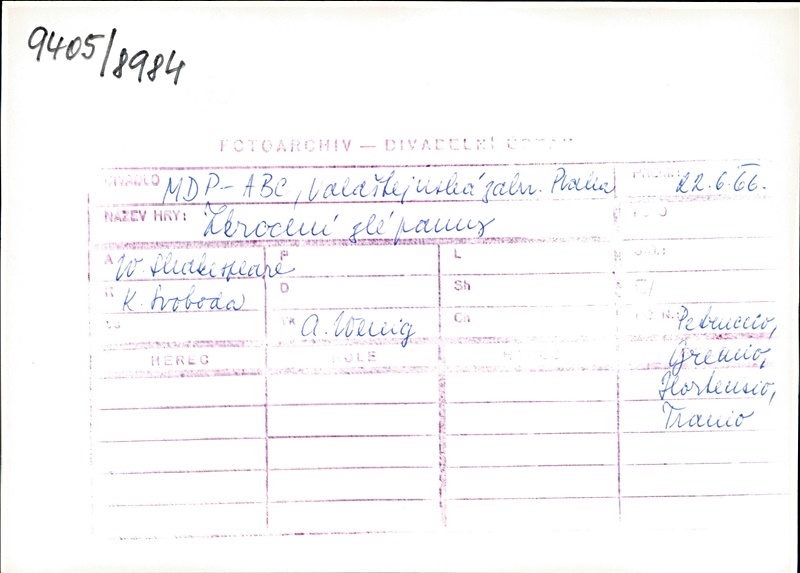 9405/8984
FOTOARCHIV — DIVADELNÍ ÚSTAV
DIVADLO MDP-ABC, Valdštejnská zahr. Praha
22.6.66.
NÁZEV HRY: Zkrocení zlé paniky
A W. Shakespeare P L
R K. Svoboda D Sh
Vk A. Wenig Ch Petruccio,
HEREC ROLE Gremio,
Hortensio,
Tranio